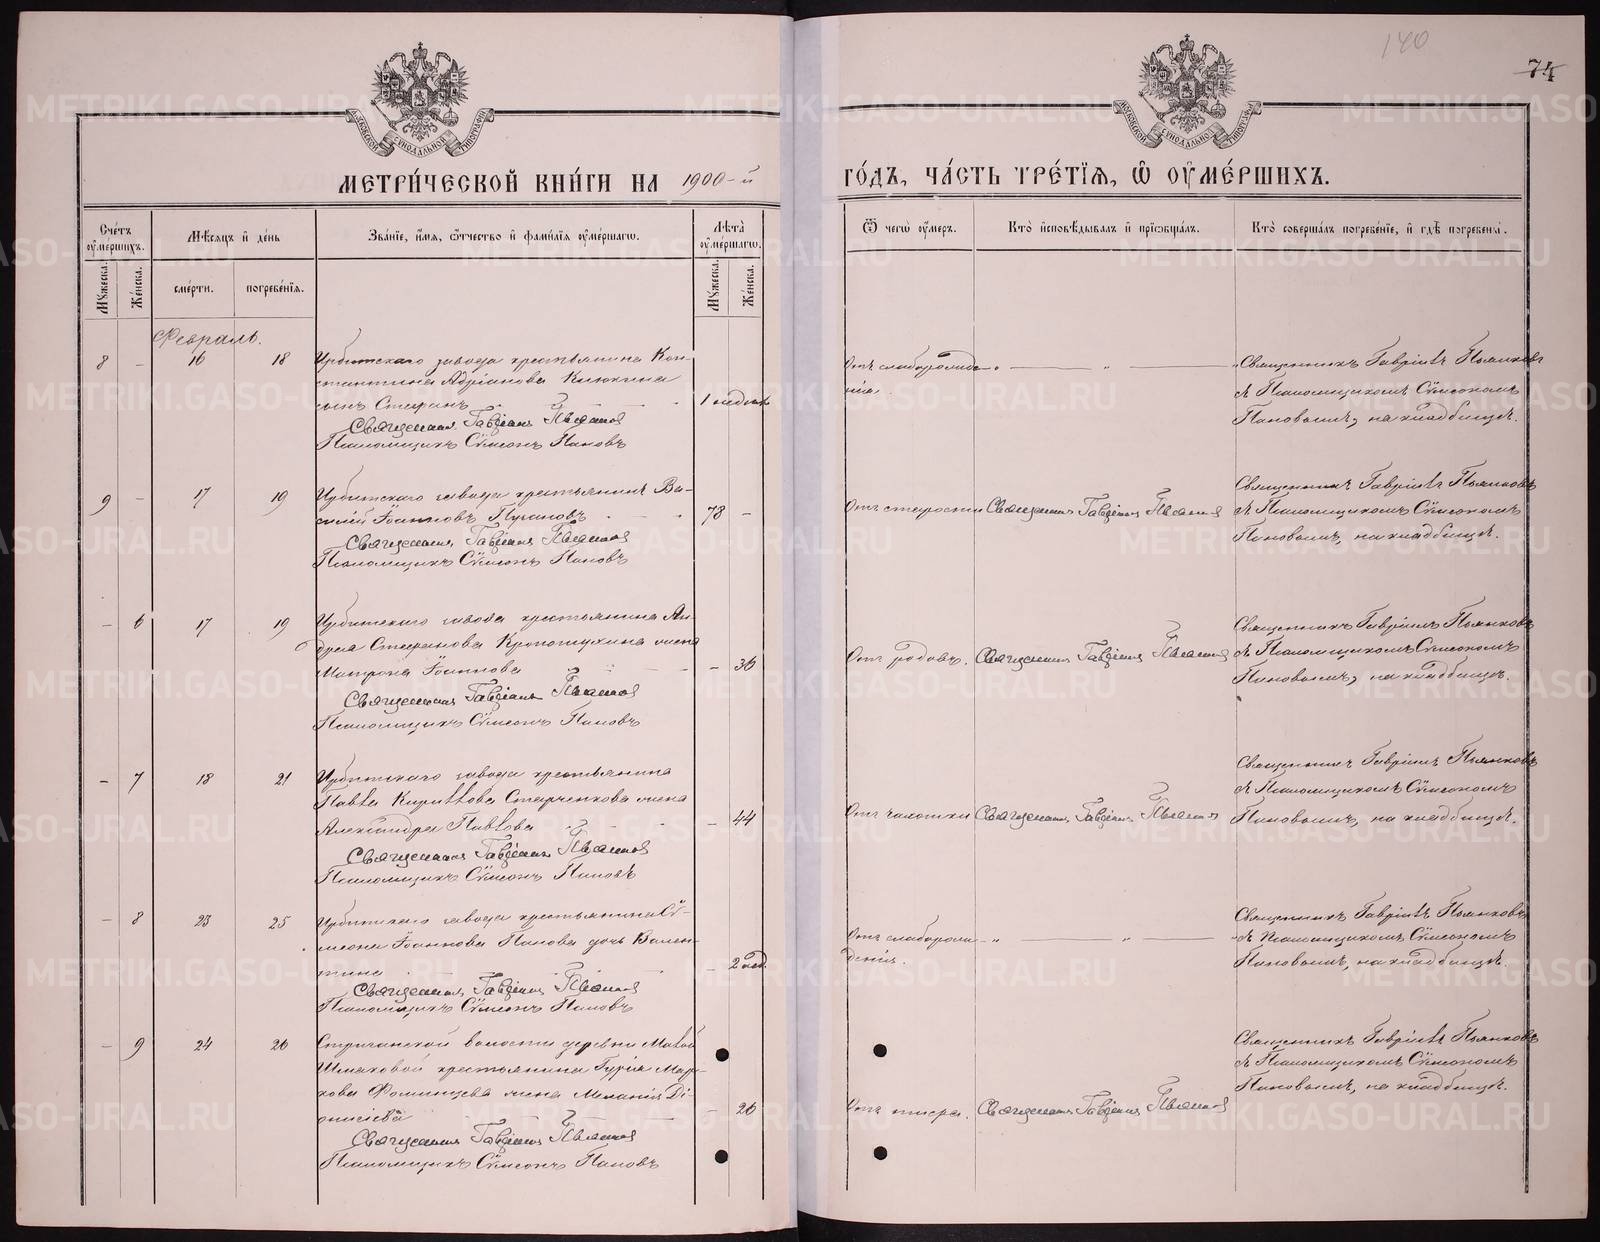 140
74
МЕТРИ́ЧЕСКОЙ КНИ́ГИ НА 1900-й
ГО́ДЪ, ЧА́СТЬ ТРЕ́ТІЯ, Ѿ ОУМЕ́РШИХЪ.
Сче́тъ оуме́ршихъ.
Мѣ́сяцъ и де́нь
Зва́ніе, и́мя, о́тчество и фами́лія оуме́ршаго.
Лѣ́та оуме́ршаго.
Ѿ чегѡ̀ оу́меръ.
Кто̀ и҆сповѣ́дывалъ и҆ прїѡбща́лъ.
Кто̀ соверша́лъ погребе́ніе, и҆ гдѣ̀ погребены̀.
Му́жеска.
Же́нска.
сме́рти.
погребе́нія.
Му́жеска.
Же́нска.
Февраль.
8 - 16 18 Ирбитскаго завода крестьянина Кон-
стантина Адріанова Клюкина
сынъ Стефанъ 1 недели
Священник Гавріилъ Пьянков
Псаломщикъ Сѷмеонъ Пановъ
Отъ слаборожде-
нія.
Священникъ Гавріилъ Пьянковъ
съ Псаломщикомъ Сѷмеономъ
Пановымъ, на кладбищѣ.
9 - 17 19 Ирбитскаго завода крестьянинъ Ва-
силій Іоанновъ 78 -
Священник Гавріилъ Пьянков
Псаломщикъ Сѷмеонъ Пановъ
Отъ старости Священник Гавріилъ Пьянков
Священникъ Гавріилъ Пьянковъ
съ Псаломщикомъ Сѷмеономъ
Пановымъ, на кладбищѣ.
- 6 17 19 Ирбитскаго завода крестьянина Ан-
дрея Стефанова Кропотухина жена
Матрона Іоаннова - 36
Священник Гавріилъ Пьянков
Псаломщикъ Сѷмеонъ Пановъ
Отъ родовъ. Священник Гавріилъ Пьянков
Священникъ Гавріилъ Пьянковъ
съ Псаломщикомъ Сѷмеономъ
Пановымъ, на кладбищѣ.
- 7 18 21 Ирбитскаго завода крестьянина
Павла Кириллова Старченкова жена
Александра Павлова - 44
Священник Гавріилъ Пьянков
Псаломщикъ Сѷмеонъ Пановъ
Отъ чахотки Священник Гавріилъ Пьянков
Священникъ Гавріилъ Пьянковъ
съ Псаломщикомъ Сѷмеономъ
Пановымъ, на кладбищѣ.
- 8 23 25 Ирбитскаго завода крестьянина Сѷ-
меона Іоаннова Панова дочь Вален-
тина - 2 нед.
Священник Гавріилъ Пьянков
Псаломщикъ Сѷмеонъ Пановъ
Отъ слаборож-
денія.
Священникъ Гавріилъ Пьянковъ
съ Псаломщикомъ Сѷмеономъ
Пановымъ, на кладбищѣ.
- 9 24 26 Стриганской волости деревни Малой
Шмаковой крестьянина Гурія Мар-
кова Фоминцева жена Меланія Ді-
онисіева - 26
Священник Гавріилъ Пьянков
Псаломщикъ Сѷмеонъ Пановъ
Отъ тифа. Священник Гавріилъ Пьянков
Священникъ Гавріилъ Пьянковъ
съ Псаломщикомъ Сѷмеономъ
Пановымъ, на кладбищѣ.
METRIKI.GASO-URAL.RU